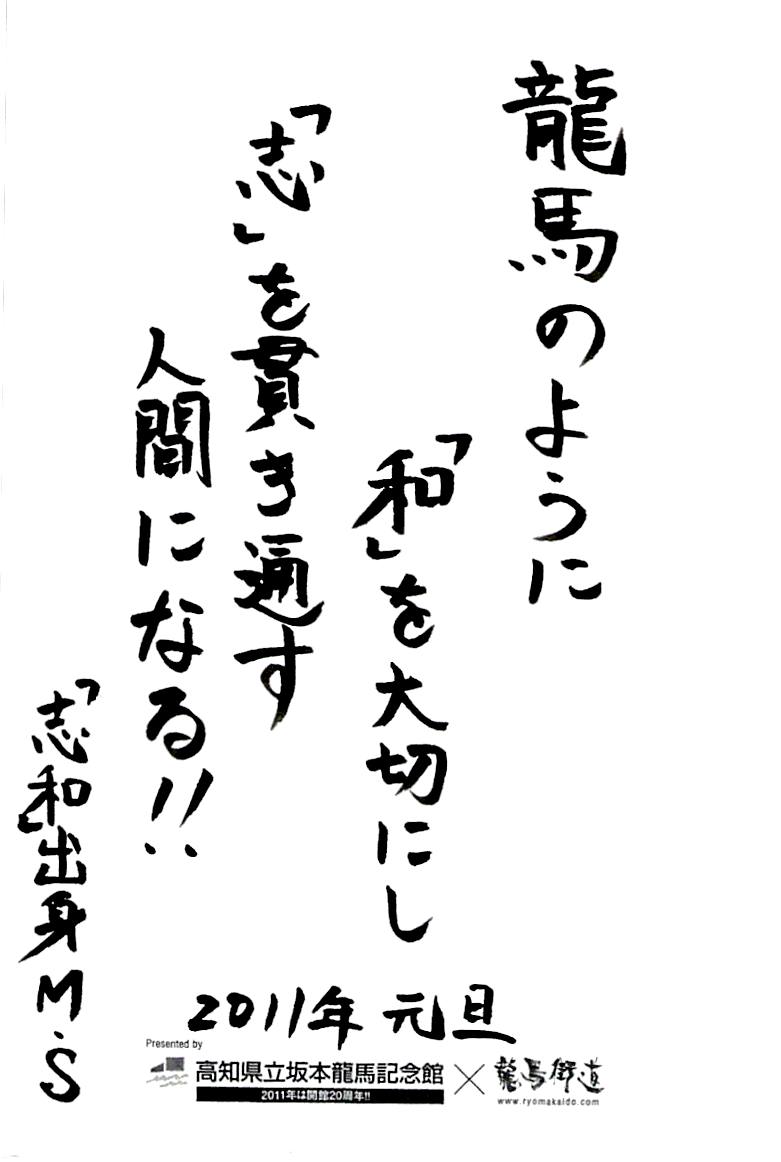 龍馬のように
「和」を大切にし
「志」を貫き通す
人間になる!!
「志和」出身M.S
2011年 元旦
Presented by
高知県立坂本龍馬記念館
2011年は開館20周年!!
×
龍馬街道
www.ryomakaido.com